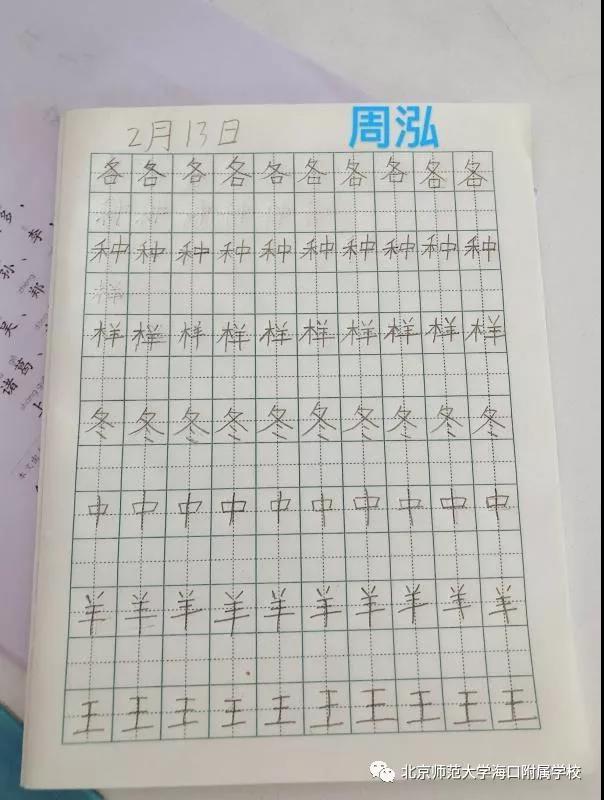 2月13日
周泓
各各各各各各各各各各
种种种种种种种种种种
样
样样样样样样样样样样
冬冬冬冬冬冬冬冬冬冬
中中中中中中中中中中
羊羊羊羊羊羊羊羊羊羊
王王王王王王王王王王
多、
李、
孙、
郑、
吴、
诸葛、
北京师范大学海口附属学校